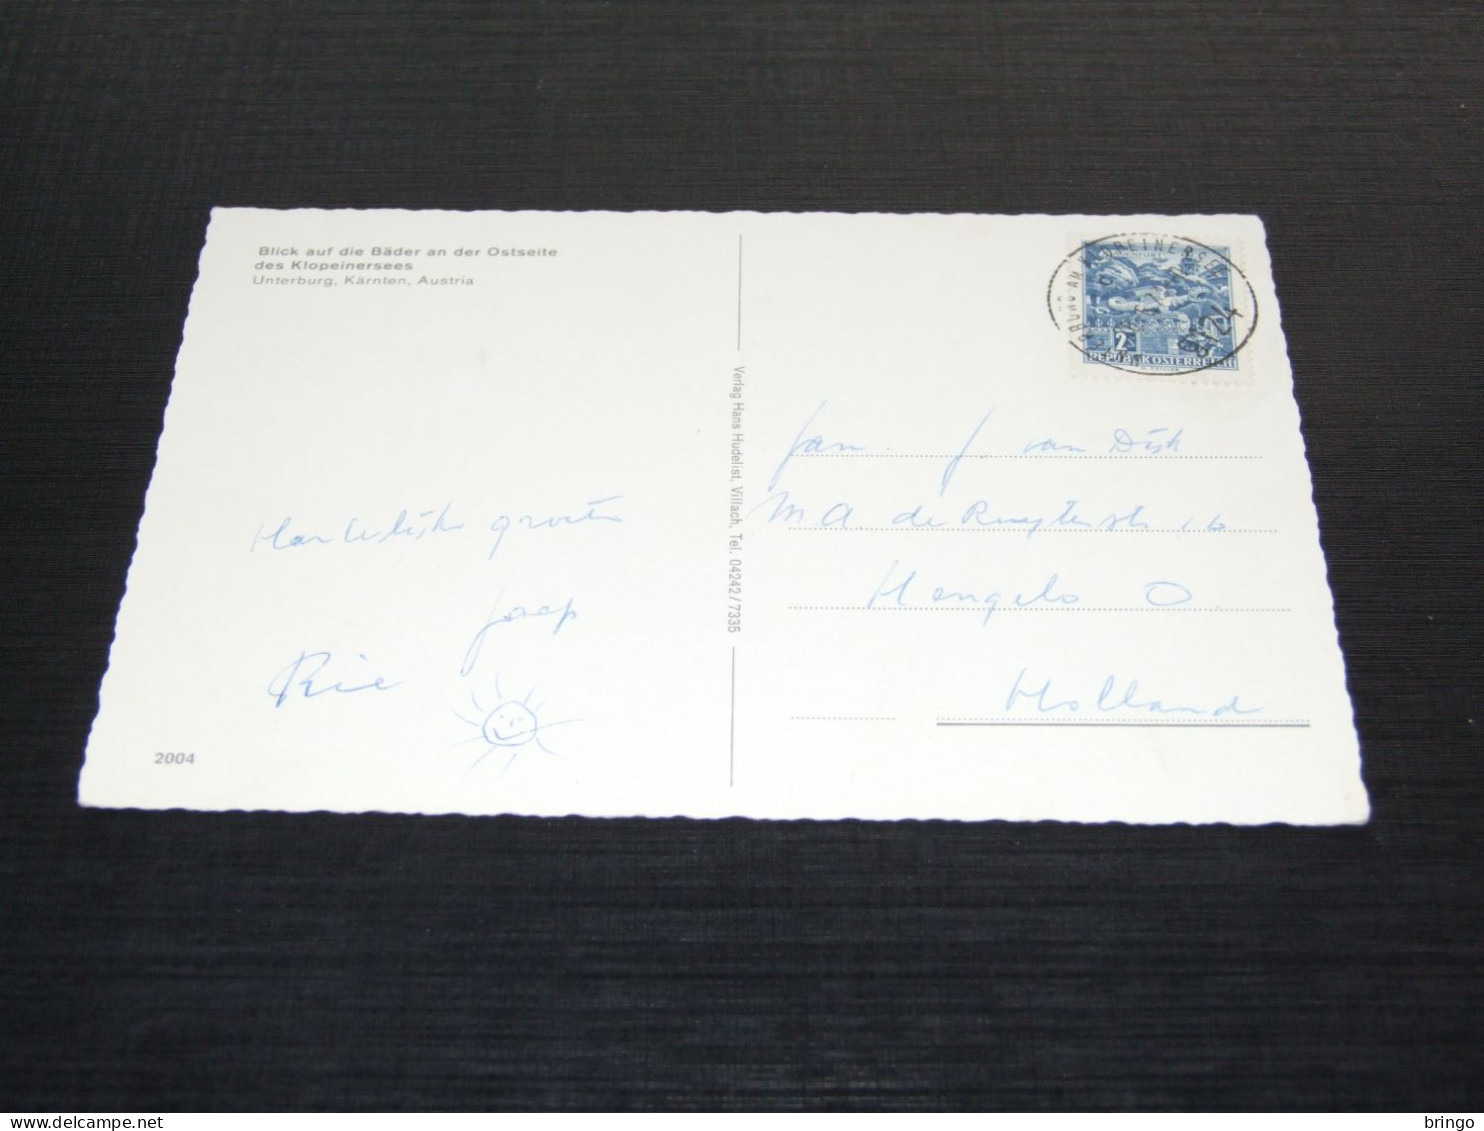 Blick auf die Bäder an der Ostseite
des Klopeinersees
Unterburg, Kärnten, Austria
Hartelijke groeten
Jaap
Rie
2004
Verlag Hans Hudelist, Villach, Tel. 04242/7335
AM KLOPEINERSEE
2
REPUBLIK ÖSTERREICH
Fam. J. van Dijk
M A. de Ruyterstr 16
Hengelo O
Holland
bringo